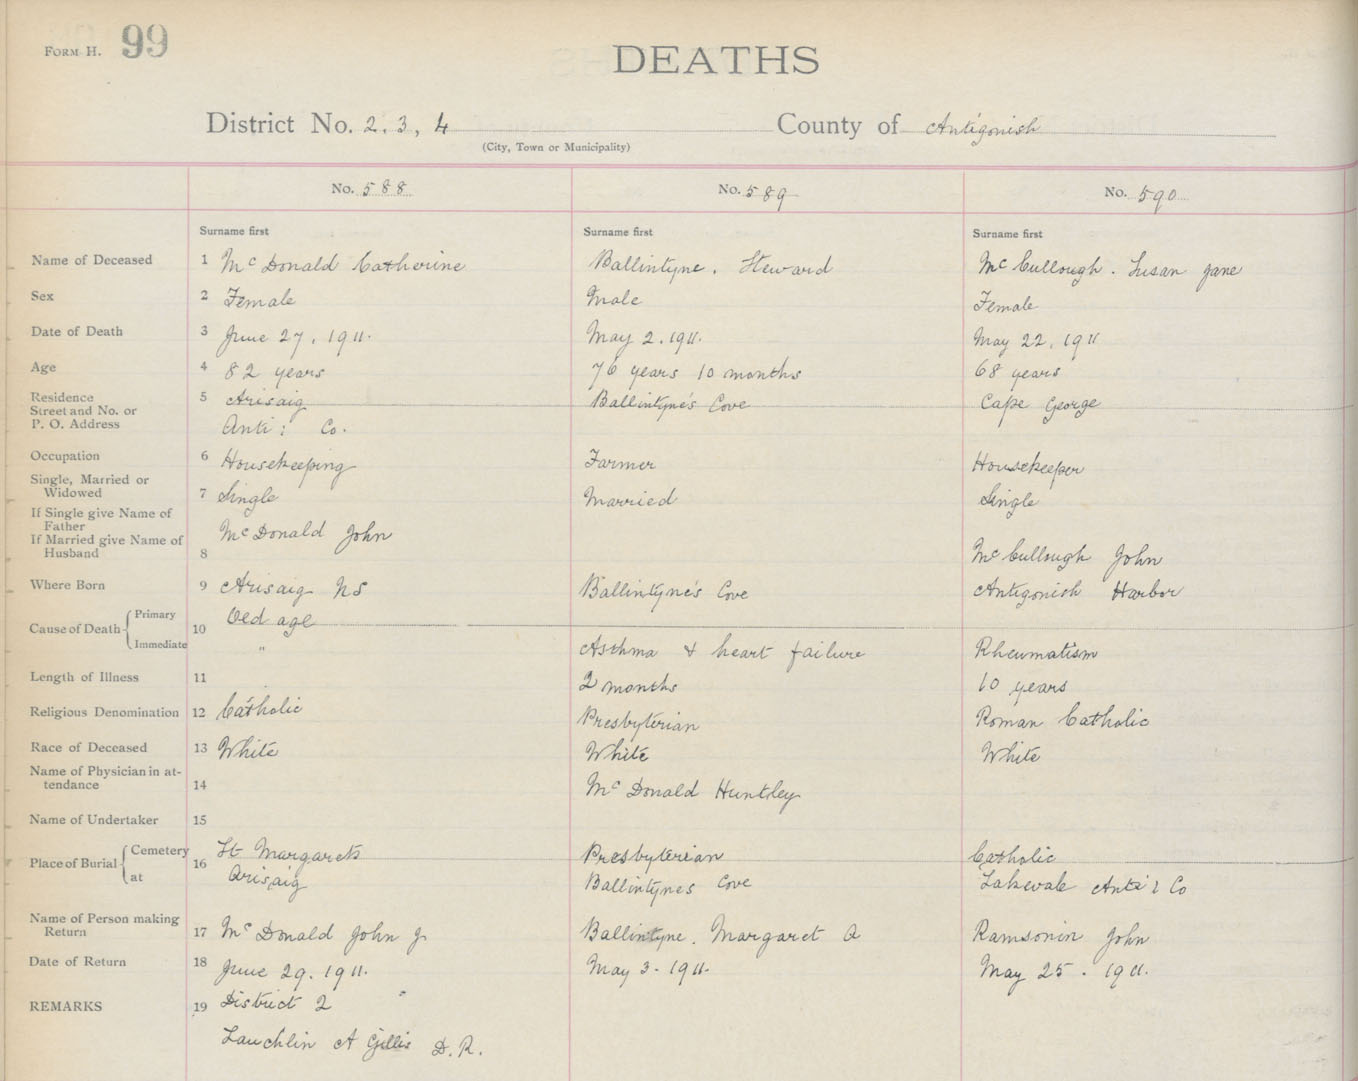 FORM H. 99
DEATHS
District No. 2, 3, 4 County of Antigonish
(City, Town or Municipality)
No. 588 No. 589 No. 590
Surname first Surname first Surname first
Name of Deceased 1 Mc Donald Catherine Ballintyne. Steward Mc Cullough. Susan Jane
Sex 2 Female Male Female
Date of Death 3 June 27, 1911. May 2. 1911. May 22, 1911
Age 4 82 years 76 years 10 months 68 years
Residence 5 Arisaig Ballintyne's Cove Cape George
Street and No. or
P. O. Address Anti: Co.
Occupation 6 Housekeeping Farmer Housekeeper
Single, Married or
Widowed 7 Single Married Single
If Single give Name of
Father Mc Donald John
If Married give Name of
Husband 8 Mc Cullough John
Where Born 9 Arisaig NS Ballintyne's Cove Antigonish Harbor
Cause of Death 10 Primary Oed age
Immediate " Asthma & heart failure Rheumatism
Length of Illness 11 2 months 10 years
Religious Denomination 12 Catholic Presbyterian Roman Catholic
Race of Deceased 13 White White White
Name of Physician in at-
tendance 14 Mc Donald Huntley
Name of Undertaker 15
Place of Burial 16 Cemetery St Margarets Presbyterian Catholic
at Arisaig Ballintynes Cove Lakevale Anti: Co
Name of Person making
Return 17 Mc Donald John J. Ballintyne. Margaret A Ramsonin John
Date of Return 18 June 29. 1911. May 3. 1911. May 25. 1911.
REMARKS 19 District 2
Lauchlin A Gillis D. R.